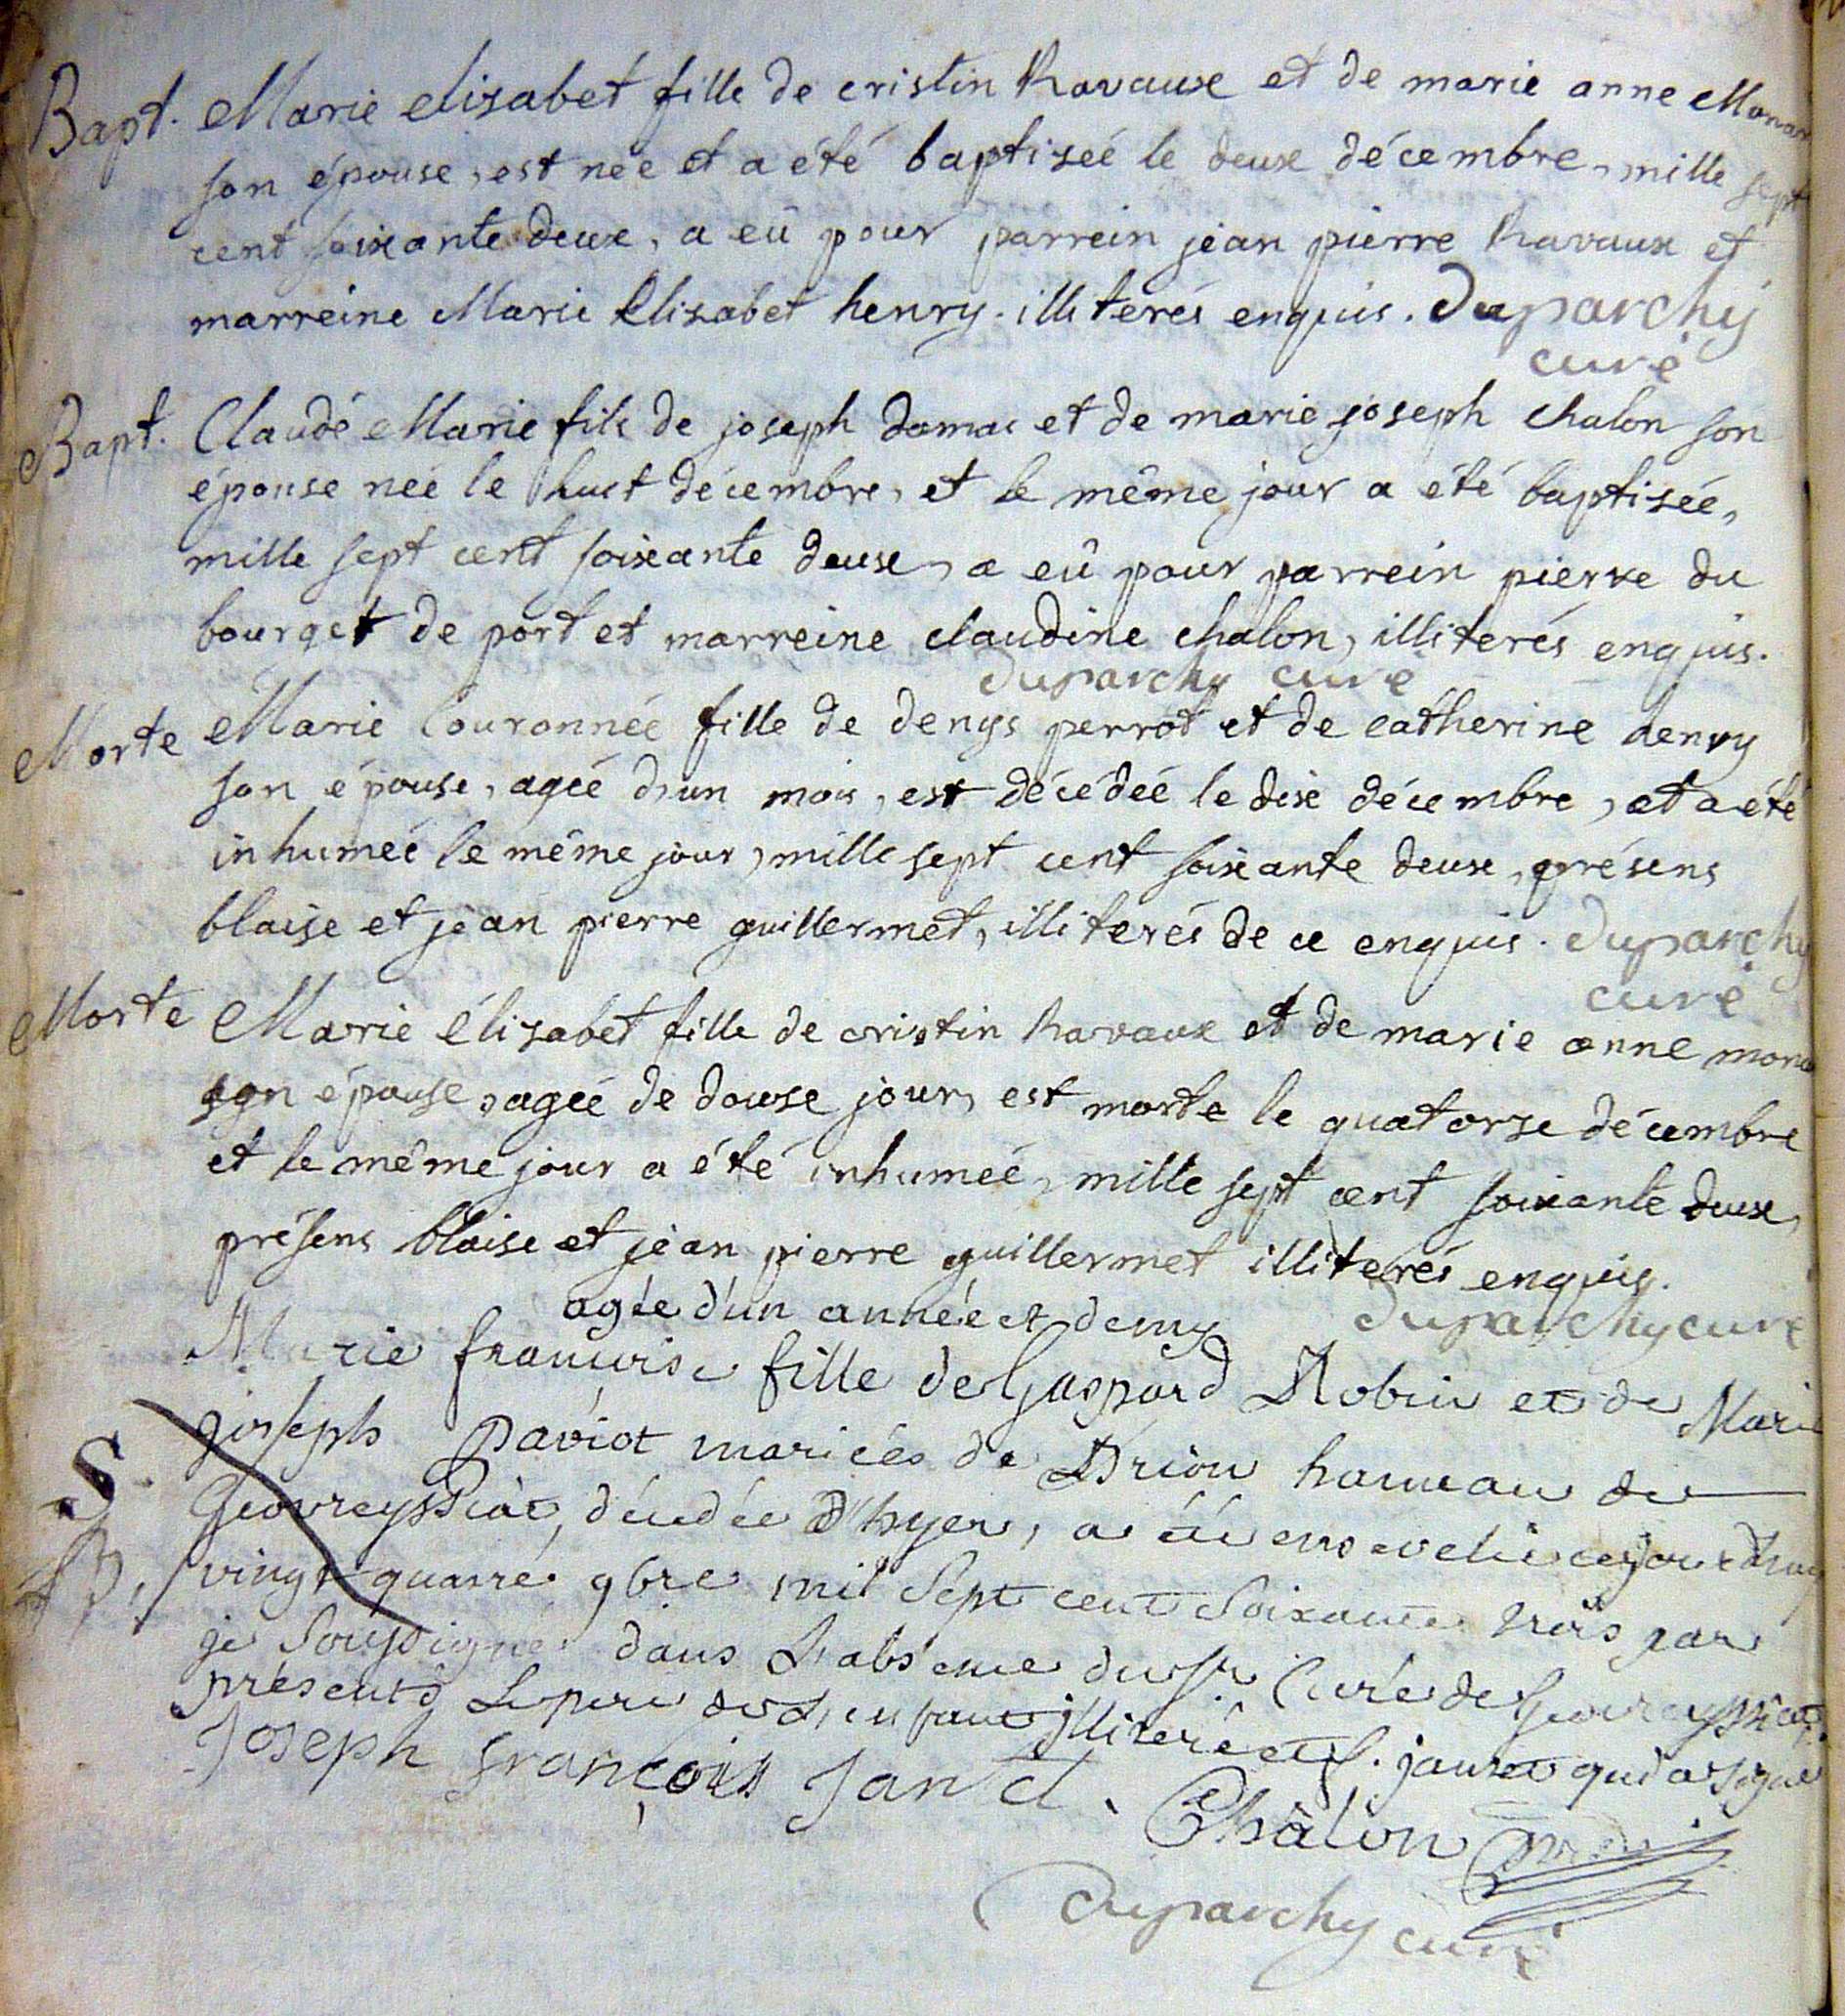 Bapt. Marie elisabet fille de cristin Ravaux et de marie anne
son épouse, est neé et a été baptiseé le deux décembre, mille sept
cent soixante deux, a eû pour parrein jean pierre Ravaux et
marreine Marie Elisabet henry. illiterés enquis. Duparchy
curé
Bapt. Claude Marie fils de joseph damas et de marie joseph chalon son
épouse neé le huit décembre, et le même jour a été baptiseé,
mille sept cent soixante deux, a eû pour parrein pierre du
bourget de port et marreine claudine chalon, illiterés enquis.
Duparchy curé
Morte Marie Couronneé fille de denys perrot et de catherine henry
son épouse, ageé d'un mois, est décédeé le dix décembre, et a été
inhumeé le même jour, mille sept cent soixante deux, présens
blaise et jean pierre guillermet, illiterés de ce enquis. Duparchy
curé
Morte Marie élizabet fille de cristin Ravaux et de marie anne
son épouse, ageé de douse jours, est morte le quatorze décembre
et le même jour a été inhumeé, mille sept cent soixante deux,
présens blaise et jean pierre guillermet illiterés enquis.
Duparchy curé
agée d'un année et demy
Marie francoise fille de Gaspard Robin et de Marie
joseph Paviot mariées de Brion hameau de
Geovreyssiat, décédée d'hyer, a été ensevelie ce jourdhuy
S. vingt quatre 9bre mil sept cent soixante trois par
je soussigné dans L'absence du Sr Curé de Geovreyssiat
présents Le pere de L'enfant illiteré et f. janet qui a signé
Joseph françois Janet. Châlon
Duparchy curé